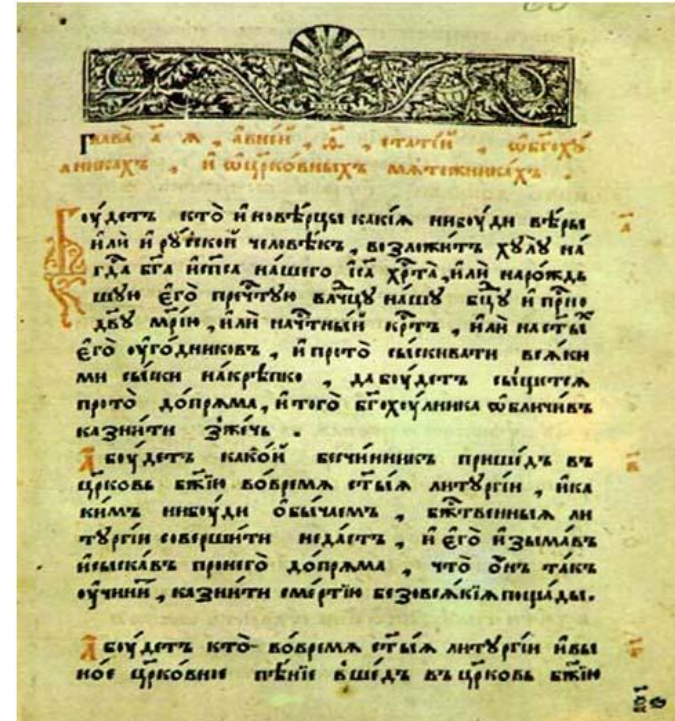 Глава̀ а҃ ѧ , а҆вне́й , ѳ҃ , стате́й , ѡ҆бг҃охꙋ́
лникахъ , и҆ ѡ҆цр҃ко́вныхъ мѧте́жника́хъ .
Боу́детъ кто̀ и҆новѣ́рцы какі́ѧ нибоу́ди вѣ́ры
и҆лѝ и҆ рꙋ́сской человѣ́къ , возложи́тъ хꙋлꙋ̀ на́
гдⷭ҇а бг҃а и҆ сп҃са на́шего і҆с҃а хрⷭ҇та̀ , и҆лѝ наро́ждь
шꙋю є҆го̀ пречⷭ҇тꙋю влⷣчцꙋ на́шꙋ бцⷣꙋ и҆ прⷭ҇но
дв҃ꙋ мр҃і́ю , и҆лѝ начⷭ҇тны́й крⷭ҇тъ , и҆лѝ на ст҃ы́х
є҆го̀ оу҆го́дниковъ , и҆ прото̀ сы́скивати всѧ́ки
ми сы́ски на́крѣпко , да боу́детъ сы́щетсѧ
прото̀ до́прѧма , и҆ того̀ бг҃охоу́лника ѡ҆бличи́въ
казни́ти зже́чь .
А҆ боу́детъ како́й бесчи́нникъ прише́дъ въ
цр҃ковь бж҃їю во́времѧ ст҃ы́ѧ литꙋргі́и , и҆ ка
ки́мъ нибоу́ди ѻ҆бы́чаемъ , бжⷭ҇твенныѧ ли
тꙋргі́и соверши́ти неда́стъ , и҆ є҆го̀ и҆зыма́въ
и҆ сыска́въ пронего̀ до́прѧма , что̀ ѻ҆́нъ та́къ
оу҆чини́т , казни́ти сме́ртїю безовсѧ́кїѧ поща́ды .
А҆ боу́детъ кто̀ во́времѧ ст҃ы́ѧ литꙋргі́и и҆вы
но́е цр҃ко́вное пѣ́нїе вше́дъ въ цр҃ковь бж҃їю
а҃
в҃
г҃